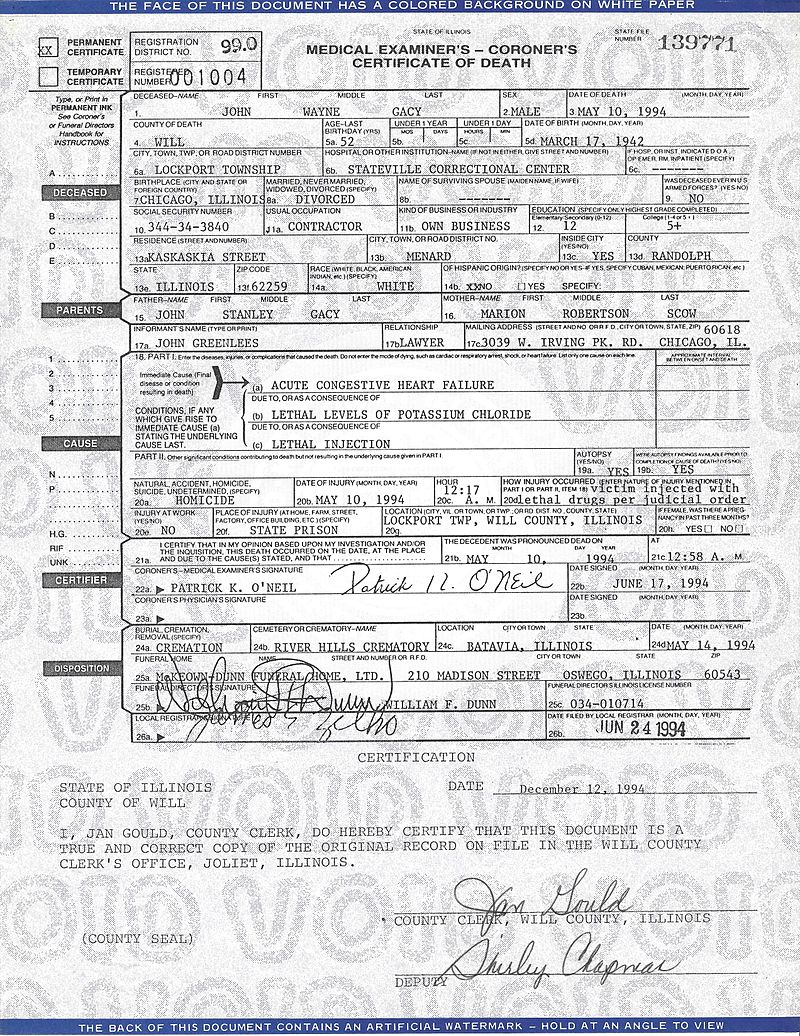 THE FACE OF THIS DOCUMENT HAS A COLORED BACKGROUND ON WHITE PAPER
STATE OF ILLINOIS
XX PERMANENT CERTIFICATE
TEMPORARY CERTIFICATE
REGISTRATION DISTRICT NO. 99.0
REGISTERED NUMBER 001004
MEDICAL EXAMINER'S – CORONER'S
CERTIFICATE OF DEATH
STATE FILE NUMBER 139771
Type, or Print in
PERMANENT INK
See Coroner's
or Funeral Directors
Handbook for
INSTRUCTIONS
DECEASED–NAME FIRST MIDDLE LAST SEX DATE OF DEATH (MONTH, DAY, YEAR)
1. JOHN WAYNE GACY 2. MALE 3. MAY 10, 1994
COUNTY OF DEATH AGE–LAST BIRTHDAY (YRS) UNDER 1 YEAR MOS DAYS UNDER 1 DAY HOURS MIN DATE OF BIRTH (MONTH, DAY, YEAR)
4. WILL 5a. 52 5b. 5c. 5d. MARCH 17, 1942
CITY, TOWN, TWP, OR ROAD DISTRICT NUMBER HOSPITAL OR OTHER INSTITUTION–NAME (IF NOT IN EITHER, GIVE STREET AND NUMBER) IF HOSP. OR INST. INDICATE D.O.A. OP/EMER. RM. INPATIENT (SPECIFY)
A
6a. LOCKPORT TOWNSHIP 6b. STATEVILLE CORRECTIONAL CENTER 6c. -------
DECEASED
BIRTHPLACE (CITY AND STATE OR FOREIGN COUNTRY) MARRIED, NEVER MARRIED, WIDOWED, DIVORCED (SPECIFY) NAME OF SURVIVING SPOUSE (MAIDEN NAME, IF WIFE) WAS DECEASED EVER IN U.S. ARMED FORCES? (YES/NO)
7. CHICAGO, ILLINOIS 8a. DIVORCED 8b. -------- 9. NO
B
SOCIAL SECURITY NUMBER USUAL OCCUPATION KIND OF BUSINESS OR INDUSTRY EDUCATION (SPECIFY ONLY HIGHEST GRADE COMPLETED) Elementary Secondary (0-12) College (1-4 or 5+)
C
10. 344-34-3840 11a. CONTRACTOR 11b. OWN BUSINESS 12. 12 5+
D
RESIDENCE (STREET AND NUMBER) CITY, TOWN, OR ROAD DISTRICT NO. INSIDE CITY (YES/NO) COUNTY
E
13a KASKASKIA STREET 13b. MENARD 13c. YES 13d. RANDOLPH
STATE ZIP CODE RACE (WHITE, BLACK, AMERICAN INDIAN, etc.) (SPECIFY) OF HISPANIC ORIGIN? (SPECIFY NO OR YES–IF YES, SPECIFY CUBAN, MEXICAN, PUERTO RICAN, etc.)
13e. ILLINOIS 13f. 62259 14a. WHITE 14b. XX NO YES SPECIFY:
PARENTS
FATHER–NAME FIRST MIDDLE LAST MOTHER–NAME FIRST MIDDLE LAST
15. JOHN STANLEY GACY 16. MARION ROBERTSON SCOW
INFORMANT'S NAME (TYPE OR PRINT) RELATIONSHIP MAILING ADDRESS (STREET AND NO. OR R.F.D., CITY OR TOWN, STATE, ZIP) 60618
17a. JOHN GREENLEES 17b LAWYER 17c 3039 W. IRVING PK. RD. CHICAGO, IL.
1
2
3
4
5
18. PART I. Enter the diseases, injuries, or complications that caused the death. Do not enter the mode of dying, such as cardiac or respiratory arrest, shock, or heart failure. List only one cause on each line. APPROXIMATE INTERVAL BETWEEN ONSET AND DEATH
Immediate Cause (Final disease or condition resulting in death)
(a) ACUTE CONGESTIVE HEART FAILURE
DUE TO, OR AS A CONSEQUENCE OF
CONDITIONS, IF ANY WHICH GIVE RISE TO IMMEDIATE CAUSE (a) STATING THE UNDERLYING CAUSE LAST.
(b) LETHAL LEVELS OF POTASSIUM CHLORIDE
DUE TO, OR AS A CONSEQUENCE OF
CAUSE
(c) LETHAL INJECTION
PART II. Other significant conditions contributing to death but not resulting in the underlying cause given in PART I. AUTOPSY (YES/NO) WERE AUTOPSY FINDINGS AVAILABLE PRIOR TO COMPLETION OF CAUSE OF DEATH? (YES/NO)
19a. YES 19b. YES
N
P
NATURAL, ACCIDENT, HOMICIDE, SUICIDE, UNDETERMINED, (SPECIFY) DATE OF INJURY (MONTH, DAY, YEAR) HOUR HOW INJURY OCCURRED (ENTER NATURE OF INJURY MENTIONED IN PART I OR PART II, ITEM 18)
20a. HOMICIDE 20b. MAY 10, 1994 20c. 12:17 A. M. 20d victim injected with lethal drugs per judicial order
INJURY AT WORK (YES/NO) PLACE OF INJURY (AT HOME, FARM, STREET, FACTORY, OFFICE BUILDING, ETC.) (SPECIFY) LOCATION (CITY, VIL. OR TOWN, OR TWP., OR RD. DIST. NO., COUNTY, STATE) IF FEMALE, WAS THERE A PREGNANCY IN PAST THREE MONTHS?
20e. NO 20f. STATE PRISON 20g. LOCKPORT TWP, WILL COUNTY, ILLINOIS 20h. YES NO
H.G.
RIF
UNK
I CERTIFY THAT IN MY OPINION BASED UPON MY INVESTIGATION AND/OR THE INQUISITION, THIS DEATH OCCURRED ON THE DATE, AT THE PLACE AND DUE TO THE CAUSE(S) STATED, AND THAT
21a.
THE DECEDENT WAS PRONOUNCED DEAD ON MONTH DAY YEAR AT
21b. MAY 10, 1994 21c 12:58 A. M.
CERTIFIER
CORONER'S–MEDICAL EXAMINER'S SIGNATURE DATE SIGNED (MONTH, DAY, YEAR)
22a. PATRICK K. O'NEIL Patrick K. O'Neil 22b. JUNE 17, 1994
CORONER'S PHYSICIAN'S SIGNATURE DATE SIGNED (MONTH, DAY, YEAR)
23a. 23b.
BURIAL, CREMATION, REMOVAL (SPECIFY) CEMETERY OR CREMATORY–NAME LOCATION CITY OR TOWN STATE DATE (MONTH, DAY, YEAR)
24a. CREMATION 24b. RIVER HILLS CREMATORY 24c. BATAVIA, ILLINOIS 24d MAY 14, 1994
DISPOSITION
FUNERAL HOME NAME STREET AND NUMBER OR R.F.D. CITY OR TOWN STATE ZIP
25a. McKEOWN-DUNN FUNERAL HOME, LTD. 210 MADISON STREET OSWEGO, ILLINOIS 60543
FUNERAL DIRECTOR'S SIGNATURE FUNERAL DIRECTOR'S ILLINOIS LICENSE NUMBER
25b. WILLIAM F. DUNN 25c. 034-010714
LOCAL REGISTRAR'S SIGNATURE DATE FILED BY LOCAL REGISTRAR (MONTH, DAY, YEAR)
26a. 26b. JUN 24 1994
CERTIFICATION
STATE OF ILLINOIS DATE December 12, 1994
COUNTY OF WILL
I, JAN GOULD, COUNTY CLERK, DO HEREBY CERTIFY THAT THIS DOCUMENT IS A
TRUE AND CORRECT COPY OF THE ORIGINAL RECORD ON FILE IN THE WILL COUNTY
CLERK'S OFFICE, JOLIET, ILLINOIS.
Jan Gould
COUNTY CLERK, WILL COUNTY, ILLINOIS
(COUNTY SEAL)
Shirley Chapman
DEPUTY
THE BACK OF THIS DOCUMENT CONTAINS AN ARTIFICIAL WATERMARK – HOLD AT AN ANGLE TO VIEW